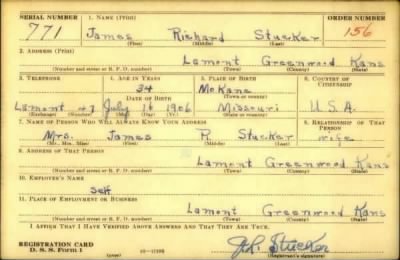 SERIAL NUMBER 1. NAME (Print) ORDER NUMBER
771 James Richard Stucker 156
(First) (Middle) (Last)
2. ADDRESS (Print)
Lamont Greenwood Kans
(Number and street or R. F. D. number) (Town) (County) (State)
3. TELEPHONE 4. AGE IN YEARS 5. PLACE OF BIRTH 6. COUNTRY OF CITIZENSHIP
34 McKane
DATE OF BIRTH (Town or county)
Lamont 47 July 16 1906 Missouri U.S.A.
(Exchange) (Number) (Mo.) (Day) (Yr.) (State or country)
7. NAME OF PERSON WHO WILL ALWAYS KNOW YOUR ADDRESS 8. RELATIONSHIP OF THAT PERSON
Mrs. James R. Stucker wife
(Mr., Mrs., Miss) (First) (Middle) (Last)
9. ADDRESS OF THAT PERSON
Lamont Greenwood Kans
(Number and street or R. F. D. number) (Town) (County) (State)
10. EMPLOYER'S NAME
Self
11. PLACE OF EMPLOYMENT OR BUSINESS
Lamont Greenwood Kans
(Number and street or R. F. D. number) (Town) (County) (State)
I AFFIRM THAT I HAVE VERIFIED ABOVE ANSWERS AND THAT THEY ARE TRUE.
REGISTRATION CARD
D. S. S. Form 1 (over) J.R. Stucker
(Registrant's signature)